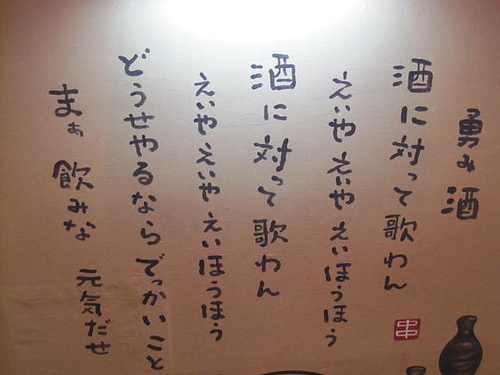 勇み酒
酒に対って歌わん
えいや えいや えいほうほう
酒に対って歌わん
えいや えいや えいほうほう
どうせやるなら でっかいこと
まぁ飲みな 元気だせ
串